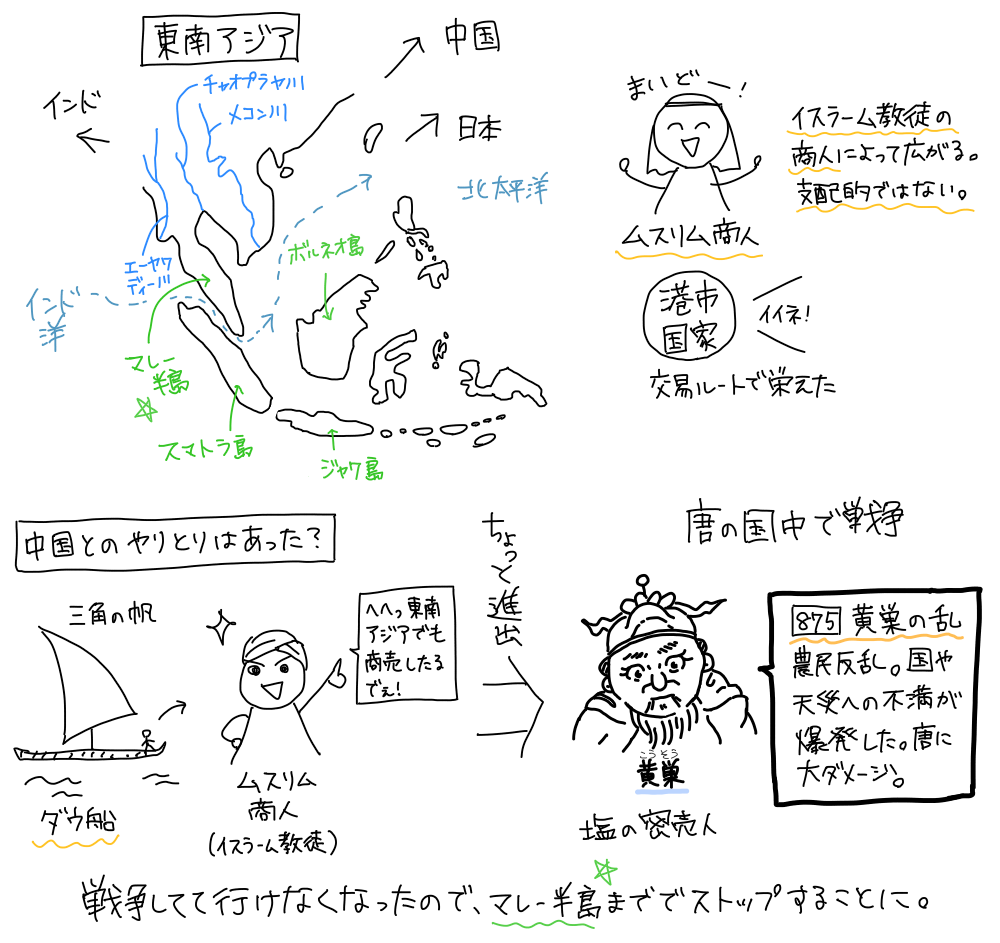 東南アジア
中国
日本
インド
チャオプラヤ川
メコン川
エーヤワ
ディー川
北太平洋
インド
洋
ボルネオ島
マレー
半島
スマトラ島
ジャワ島
まいどー！
ムスリム商人
イスラーム教徒の
商人によって広がる。
支配的ではない。
港市
国家
イイネ！
交易ルートで栄えた
中国とのやりとりはあった？
三角の帆
ダウ船
へへっ東南
アジアでも
商売したる
でぇ！
ムスリム
商人
(イスラーム教徒)
ちょっと進出
唐の国中で戦争
こうそう
黄巣
塩の密売人
875 黄巣の乱
農民反乱。国や
天災への不満が
爆発した。唐に
大ダメージ。
戦争してて行けなくなったので、マレー半島まででストップすることに。